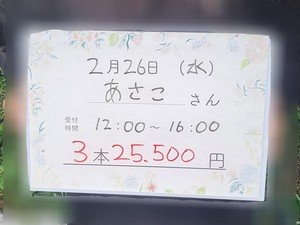 2月26日 (水)
あさこ さん
受付時間 12:00〜16:00
3本25.500円